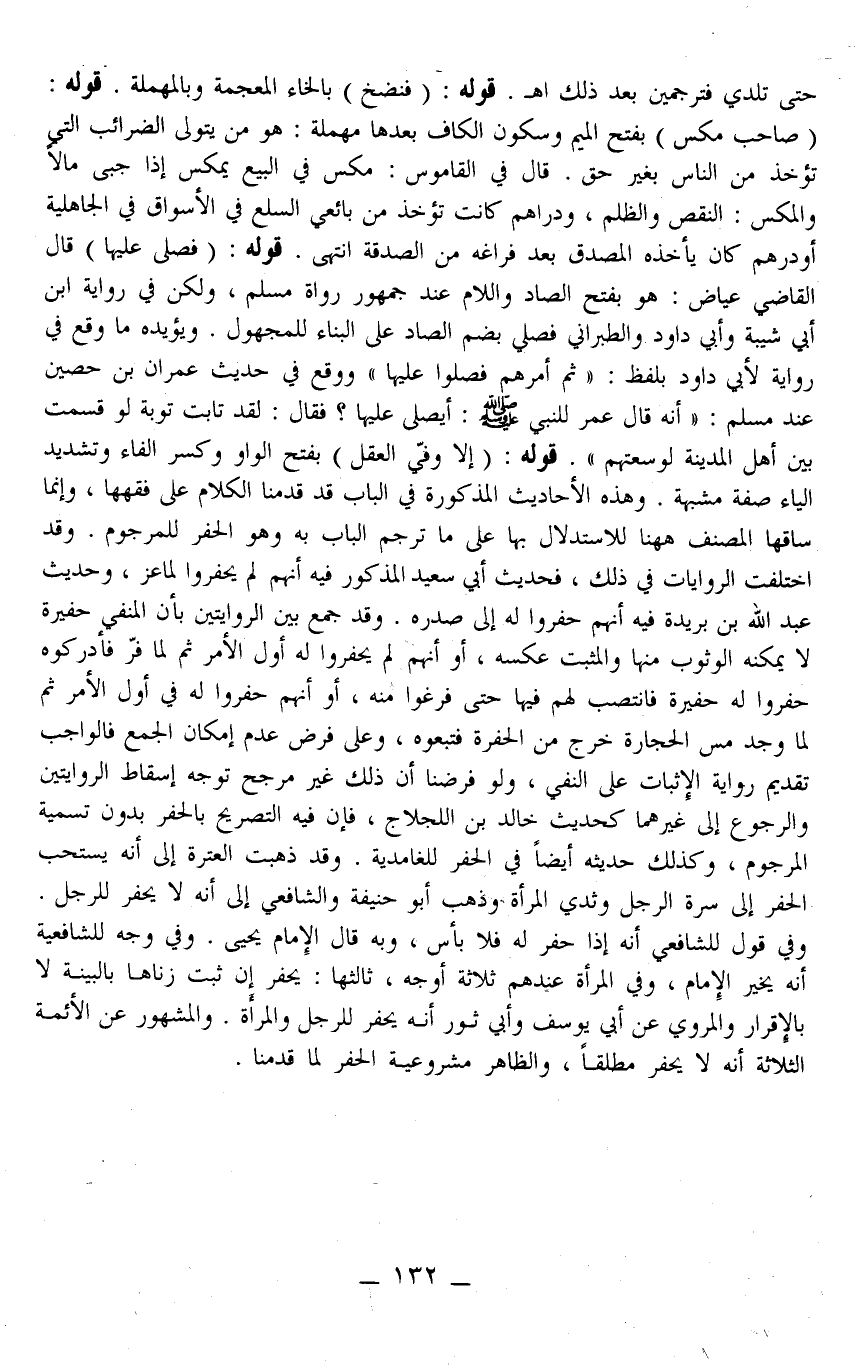 حتى تلدي فترجمين بعد ذلك اهـ . قوله : ( فنضخ ) بالخاء المعجمة وبالمهملة . قوله :
( صاحب مكس ) بفتح الميم وسكون الكاف بعدها مهملة : هو من يتولى الضرائب التي
تؤخذ من الناس بغير حق . قال في القاموس : مكس في البيع يمكس إذا جبى مالاً
والمكس : النقص والظلم ، ودراهم كانت تؤخذ من بائعي السلع في الأسواق في الجاهلية
أودرهم كان يأخذه المصدق بعد فراغه من الصدقة انتهى . قوله : ( فصلى عليها ) قال
القاضي عياض : هو بفتح الصاد واللام عند جمهور رواة مسلم ، ولكن في رواية ابن
أبي شيبة وأبي داود والطبراني فصلي بضم الصاد على البناء للمجهول . ويؤيده ما وقع في
رواية لأبي داود بلفظ : « ثم أمرهم فصلوا عليها » ووقع في حديث عمران بن حصين
عند مسلم : « أنه قال عمر للنبي ﷺ : أيصلى عليها ؟ فقال : لقد تابت توبة لو قسمت
بين أهل المدينة لوسعتهم » . قوله : ( إلا وفيّ العقل ) بفتح الواو وكسر الفاء وتشديد
الياء صفة مشبهة . وهذه الأحاديث المذكورة في الباب قد قدمنا الكلام على فقهها ، وإنما
ساقها المصنف ههنا للاستدلال بها على ما ترجم الباب به وهو الحفر للمرجوم . وقد
اختلفت الروايات في ذلك ، فحديث أبي سعيد المذكور فيه أنهم لم يحفروا لماعز ، وحديث
عبد الله بن بريدة فيه أنهم حفروا له إلى صدره . وقد جمع بين الروايتين بأن المنفي حفيرة
لا يمكنه الوثوب منها والمثبت عكسه ، أو أنهم لم يحفروا له أول الأمر ثم لما فرّ فأدركوه
حفروا له حفيرة فانتصب لهم فيها حتى فرغوا منه ، أو أنهم حفروا له في أول الأمر ثم
لما وجد مس الحجارة خرج من الحفرة فتبعوه ، وعلى فرض عدم إمكان الجمع فالواجب
تقديم رواية الإثبات على النفي ، ولو فرضنا أن ذلك غير مرجح توجه إسقاط الروايتين
والرجوع إلى غيرهما كحديث خالد بن اللجلاج ، فإن فيه التصريح بالحفر بدون تسمية
المرجوم ، وكذلك حديثه أيضاً في الحفر للغامدية . وقد ذهبت العترة إلى أنه يستحب
الحفر إلى سرة الرجل وثدي المرأة وذهب أبو حنيفة والشافعي إلى أنه لا يحفر للرجل .
وفي قول للشافعي أنه إذا حفر له فلا بأس ، وبه قال الإمام يحيى . وفي وجه للشافعية
أنه يخير الإمام ، وفي المرأة عندهم ثلاثة أوجه ، ثالثها : يحفر إن ثبت زناها بالبينة لا
بالإقرار والمروي عن أبي يوسف وأبي ثور أنه يحفر للرجل والمرأة . والمشهور عن الأئمة
الثلاثة أنه لا يحفر مطلقاً ، والظاهر مشروعية الحفر لما قدمنا .
– ١٣٢ –